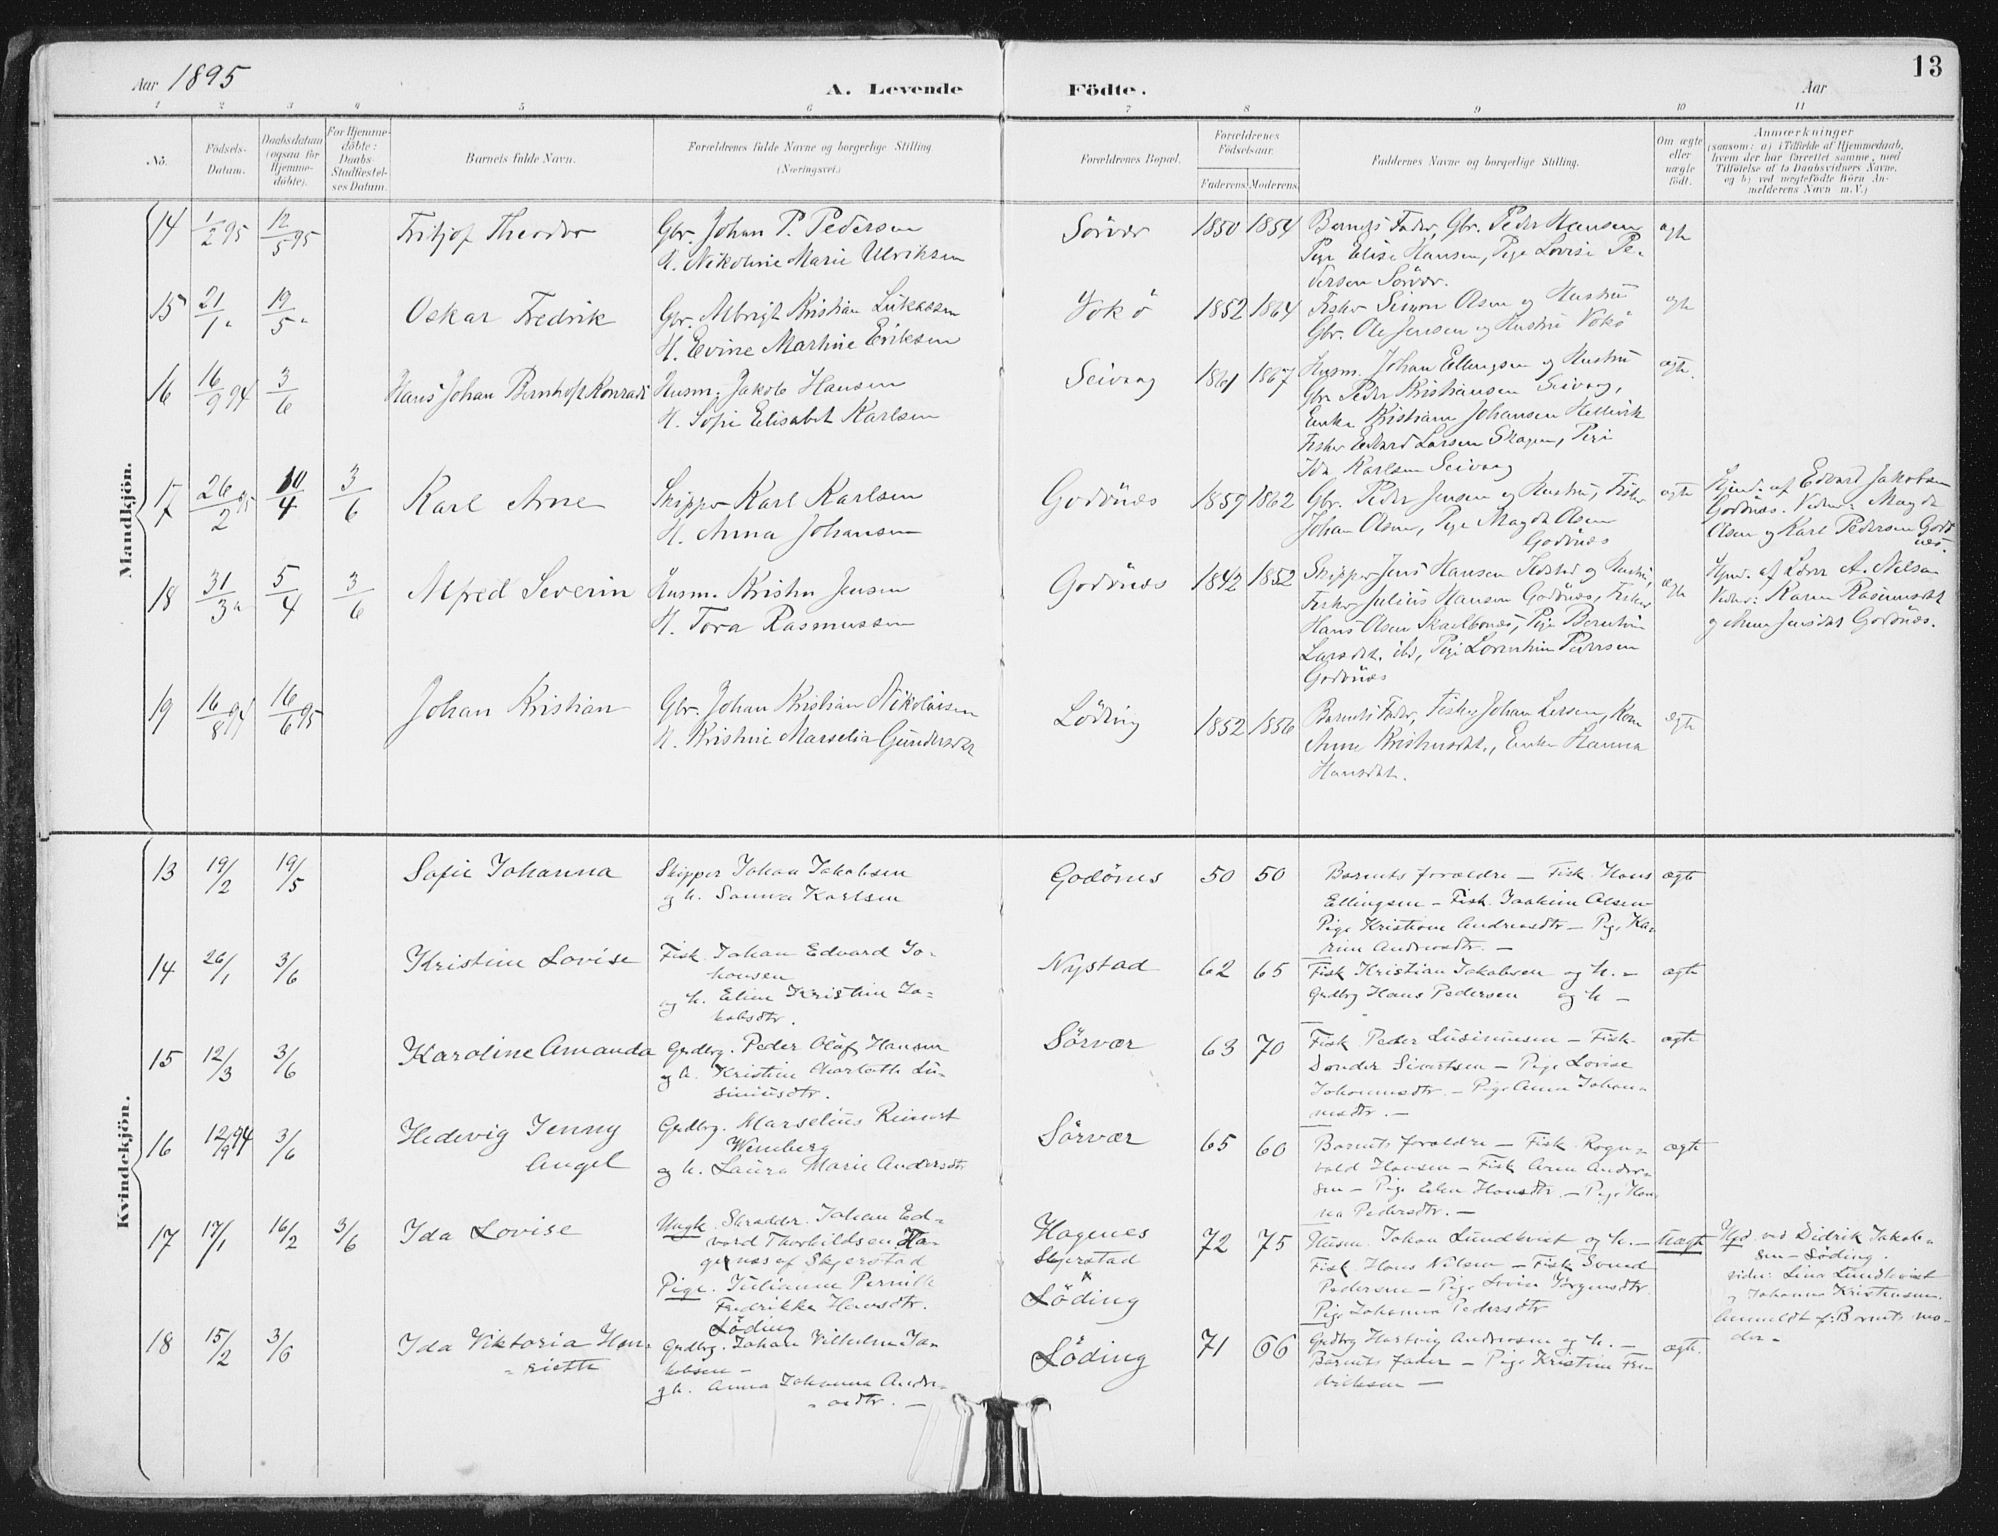 13
Aar 1895
A. Levende Födte.
Aar
1 2 3 4 5 6 7 8 9 10 11
No.
Födsels-
Datum.
Daabsdatum
(ogsaa for
Hjemme-
döbte).
For Hjemme-
döbte:
Daabs-
Stadfæstel-
ses Datum.
Barnets fulde Navn.
Forældrenes fulde Navne og borgerlige Stilling
(Næringsvei.)
Forældrenes Bopæl.
Forældrenes
Födselsaar.
Faderens. Moderens.
Faddernes Navne og borgerlige Stilling.
Om ægte
eller
uægte
födt.
Anmærkninger
(saasom: a) i Tilfælde af Hjemmedaab,
hvem der har forrettet samme, med
Tilföielse af to Daabsvidners Navne,
og b) ved uægtefödte Börn An-
melderens Navn m. V.)
Mandkjön.
14 1/2 95 12/5 95 Fritjof Theodor
Gbr. Johan P. Pedersen
H. Nikoline Marie Ulriksen
Sörvær 1850 1854
Barnets Fader, Gbr. Peder Hansen
Pige Elise Hansen, Pige Lovise Pe-
dersen Sörvær.
ægte
15 21/1 " 19/5 " Oskar Fredrik
Gbr. Albrigt Kristian Lukassen
H. Evine Martine Eriksen
Vokö 1852 1864
Fisker Simon Olsen og Hustru
Gbr. Ole Jensen og Hustru Vokö
ægte
16 16/9 94 3/6 Hans Johan Bernhoft Konradi
Husm. Jakob Hansen
H. Sofie Elisabet Karlsen
Seivaag 1861 1867
Husm. Johan Ellingsen og Hustru
Gbr Peder Kristiansen Seivaag,
Enke Kristiane Johansen Hellvik
Fisker Edvard Larsen Skagen, Pige
Ida Karlsen Seivaag
ægte.
17 26/2 95 10/4 3/6 Karl Arne
Skipper Karl Karlsen
H. Anna Johansen
Godönes 1859 1862
Gbr. Peder Jensen og Hustru, Fisker
Johan Olsen, Pige Magda Olsen
Godönes
ægte
Hjmd. af Edvard Jakobsen
Godönes. Vidner: Magda
Olsen og Karl Pedersen Godö
nes.
18 31/3 " 5/4 3/6 Alfred Severin
Husm. Kristen Jensen
H. Tora Rasmussen
Godönes 1842 1852
Skipper Jens Hansen Ildstad og Hustru,
Fisker Julius Hansen Godönes, Fisker
Hans Olsen Skaelbones, Pige Berntine
Larsdt. ibd, Pige Lorentine Petersen
Godönes
ægte
Hjmd. af Lærer A. Nelsen
Vidner: Karen Rasmusdt
og Anne Jensdat Godönes.
19 16/8 94 16/6 95 Johan Kristian
Gbr. Johan Kristian Nikolaisen
H. Kristine Marselia Gundersdt
Löding 1852 1856
Barnets Fader, Fisker Johan Larsen, Kone
Anne Kristensdt., Enke Hanna
Hansdat.
ægte
Kvindekjön.
13 19/2 19/5 Sofie Johanna
Skipper Johan Jakobsen
og h. Sanna Karlsen
Godönes 50 50
Barnets foraldre — Fisk. Hans
Ellingsen — Fisk. Joakim Olsen
Pige Kristiane Andreasdtr — Pige Ka-
rine Andreasdtr. —
ægte
14 26/1 3/6 Kristine Lovise
Fisk. Johan Edvard Jo-
hansen
og h. Eline Kristine Ja-
kobsdtr.
Nystad 62 65
Fisk Kristian Jakobsen og h. —
Grdbrg Hans Pedersen og h —
ægte
15 12/3 3/6 Karoline Amanda
Grdbrg. Peder Olaf Hansen
og h. Kristine Charlotte Lu-
siniusdtr.
Sörvær 63 70
Fisk Peder Lusiniusen — Fisk.
Donder Sivertsen — Pige Lovise
Johannesdtr. — Pige Anna Johan-
nesdtr. —
ægte
16 12/9 94 3/6 Hedevig Jenny
Angel
Grdbrg. Marselius Reinert
Wenberg
og h. Laura Marie Andersdtr
Sörvær 65 60
Barnets foraldre — Fisk. Rogn-
vald Hansen — Fisk Arne Ander-
sen — Pige Elen Hansdtr. — Pige Han-
na Pedersdtr. —
ægte
17 17/1 16/2 3/6 Ida Lovise
Ungk. Skrædder. Johan Ed-
vard Thorkildsen Ha-
genæs af Skjerstad
Pige. Julianne Pernille
Fredrikke Hansdtr.
Löding
Hagnes
Skjerstad
Löding
72 75
Husm. Johan Lundkvist og h. —
Fisk Hans Nilsen — Fisk Svend
Pedersen — Pige Lovise Jörgensdtr.
Pige Johanna Pedersdtr
uægte
Hjd. ved Didrik Jakob-
sen — Löding.
vidn: Lina Lundkvist
og Johanna Kristensen.
Anmeldt af: Barnets mo-
der —
18 15/2 3/6 Ida Viktoria Hen-
riette
Grdbrg. Johan Vilhelm Ja-
kobsen —
og h. Anna Johanna Andre-
asdtr. —
Löding 71 66
Grdbrg Hartvig Andreasen og h. —
Barnets fader — Pige Kristine Fre-
driksen —
ægte.